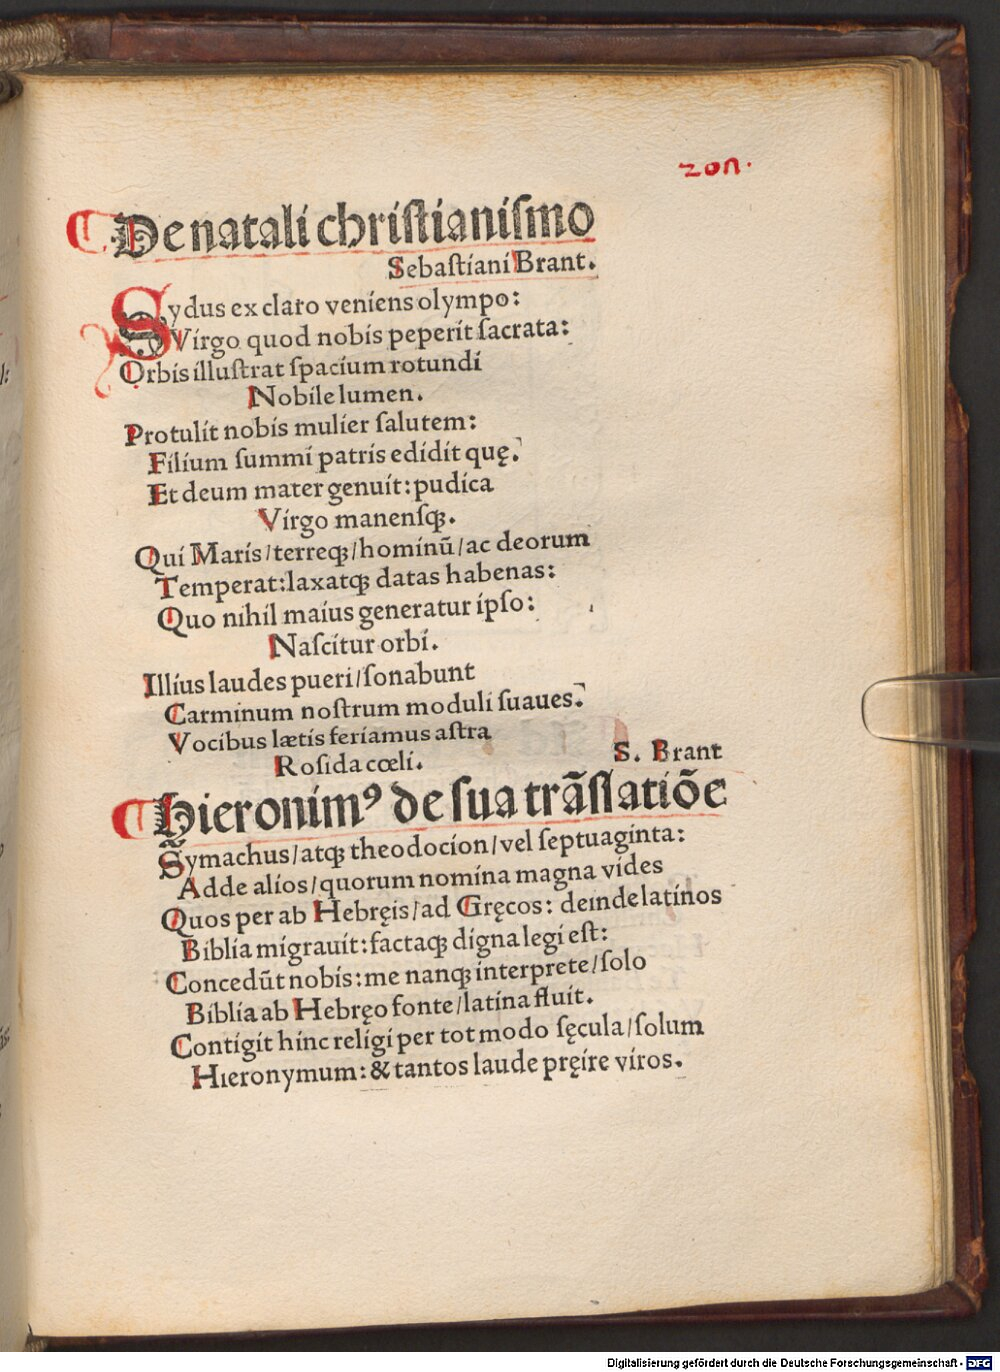 zon.
De natali christianiſmo
Sebaſtiani Brant.
Sydus ex claro veniens olympo:
Virgo quod nobis peperit ſacrata:
Orbis illuſtrat ſpacium rotundi
Nobile lumen.
Protulit nobis mulier ſalutem:
Filium ſummi patris edidit quę.
Et deum mater genuit: pudica
Virgo manenſqꝫ.
Qui Maris/terreqꝫ/hominū/ac deorum
Temperat: laxatqꝫ datas habenas:
Quo nihil maius generatur ipſo:
Naſcitur orbi.
Illius laudes pueri/ſonabunt
Carminum noſtrum moduli ſuaues.
Vocibus lætis feriamus aſtra
Roſida cœli.
S. Brant
Hieronimꝰ de ſua trāſlatiōe
Symachus/atqꝫ theodocion/vel ſeptuaginta:
Adde alios/quorum nomina magna vides
Quos per ab Hebręis/ad Gręcos: deinde latinos
Biblia migrauit: factaqꝫ digna legi eſt:
Concedūt nobis: me nanqꝫ interprete/ſolo
Biblia ab Hebręo fonte/latina fluit.
Contigit hinc religi per tot modo ſęcula/ſolum
Hieronymum: & tantos laude pręire viros.
Digitalisierung gefördert durch die Deutsche Forschungsgemeinschaft - DFG